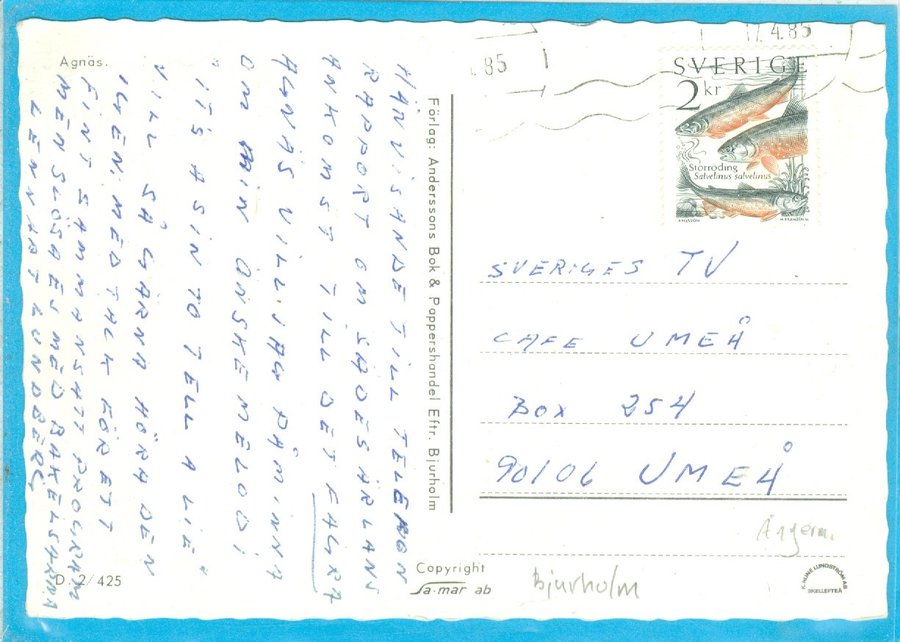 Agnäs.
HÄNVISANDE TILL TELEFON
RAPPORT OM SÄDESÄRLANS
ANKOMST TILL DET FAGRA
AGNÄS VILL JAG PÅMINNA
OM MIN ÖNSKEMELODI
"IT'S A SIN TO TELL A LIE"
VILL SÅ GÄRNA HÖRA DEN
IGEN, MED TACK FÖR ETT
FINT SAMMANSATT PROGRAM
MEN SLÖSA EJ MED BAKELSERNA
LENNART LUNDBERG
D. 2/425
Förlag: Anderssons Bok & Pappershandel Eftr. Bjurholm
Copyright
Sa-mar ab
.85
17.4.85
SVERIGE
2 kr
Storröding
Salvelinus salvelinus
SVERIGES TV
CAFE UMEÅ
BOX 254
90106 UMEÅ
Ångerm.
Bjurholm
K. RUNE LUNDSTRÖM AB
SKELLEFTEÅ